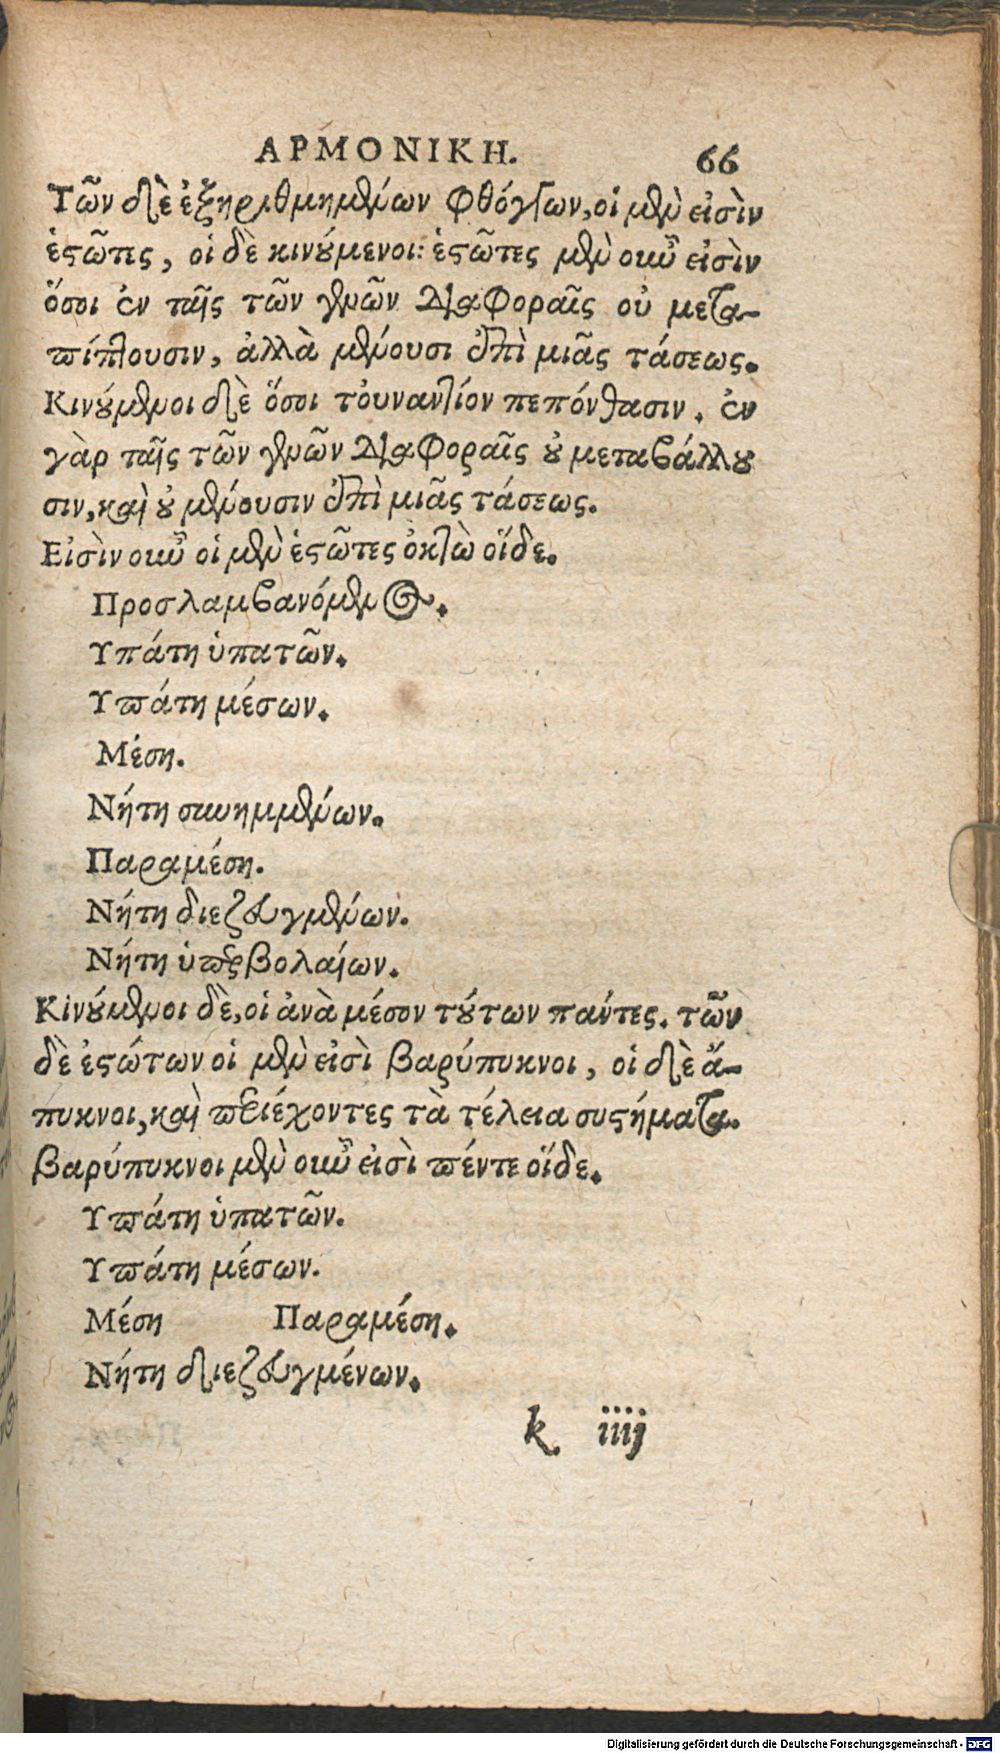 ΑΡΜΟΝΙΚΗ. 66
Τῶν δὲ ἐξηριθμημένων φθόγγων, οἱ μὲν εἰσὶν
ἑστῶτες, οἱ δὲ κινούμενοι: ἑστῶτες μὲν οὖν εἰσὶν
ὅσοι ἐν ταῖς τῶν γενῶν διαφοραῖς οὐ μετα-
πίπτουσιν, ἀλλὰ μένουσι ἐπὶ μιᾶς τάσεως.
Κινούμενοι δὲ ὅσοι τὀυναντίον πεπόνθασιν. ἐν
γὰρ ταῖς τῶν γενῶν διαφοραῖς οὐ μεταβάλλου
σιν, καὶ οὐ μένουσιν ἐπὶ μιᾶς τάσεως.
Εἰσὶν οὖν οἱ μὲν ἑστῶτες ὀκτὼ οἵδε.
Προσλαμβανόμενος.
Υπάτη ὑπατῶν.
Υπάτη μέσων.
Μέση.
Νήτη συνημμένων.
Παραμέση.
Νήτη διεζευγμένων.
Νήτη ὑπερβολαίων.
Κινούμενοι δὲ, οἱ ἀνὰ μέσον τούτων πάντες. τῶν
δὲ ἑστώτων οἱ μὲν εἰσὶ βαρύπυκνοι, οἱ δὲ ἄ-
πυκνοι, καὶ περιέχοντες τὰ τέλεια συστήματα.
βαρύπυκνοι μὲν οὖν εἰσὶ πέντε οἵδε.
Υπάτη ὑπατῶν.
Υπάτη μέσων.
Μέση Παραμέση.
Νήτη διεζευγμένων.
k iiij
Digitalisierung gefördert durch die Deutsche Forschungsgemeinschaft - DFG